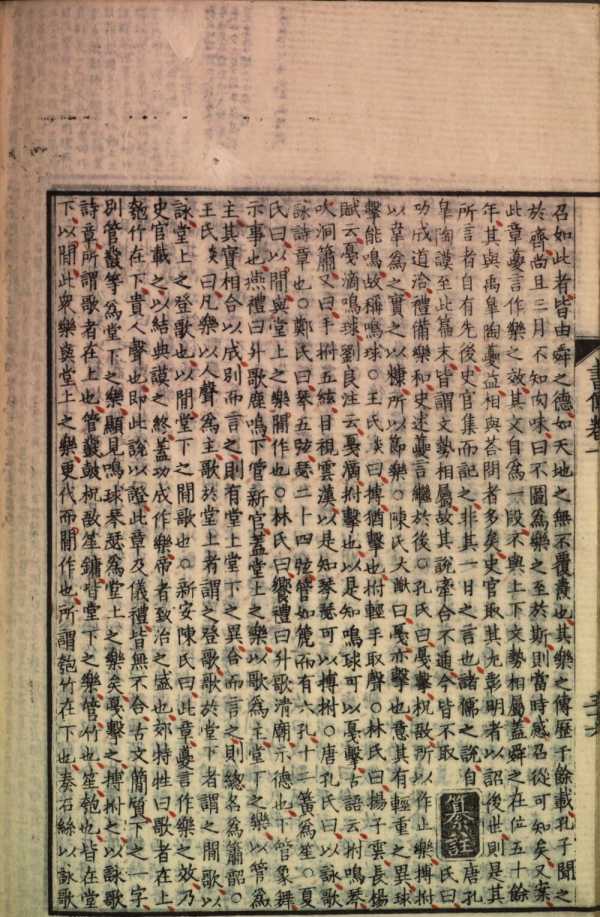 召如此者皆由舜之德如天地之無不覆燾也其樂之傳歷千餘載孔子聞之
於齊尚且三月不知肉味曰不圖爲樂之至於斯則當時感召從可知矣又案
此章夔言作樂之效其文自爲一段不與上下文勢相屬蓋舜之在位五十餘
年其與禹皋陶夔益相與荅問者多矣史官取其尤彰明者以詔後世則是其
所言者自有先後史官集而記之非其一日之言也諸儒之說自
皋陶謨至此篇末皆謂文勢相屬故其說牽合不通今皆不取
纂註
唐孔氏曰
功成道洽禮備樂和史述夔言繼於後○孔氏曰戛擊柷敔所以作止樂搏拊
以韋爲之實之以糠所以節樂○陳氏大猷曰戛亦擊也意其有輕重之異球
擊能鳴故稱鳴球○王氏炎曰搏猶擊也拊輕手取聲○林氏曰揚子雲長楊
賦云戛滴鳴球劉良注云戛滴拊擊也以是知鳴球可以戛擊古語云拊鳴琴
吹洞簫又曰手拊五絃目視雲漢以是知琴瑟可以搏拊○唐孔氏曰以詠歌
詠詩章也○鄭氏曰琴五弦瑟二十四弦管如篪而有六孔十三簧爲笙○夏
氏曰以間與堂上之樂間作也○林氏曰饗禮曰升歌淸廟示德也下管象舞
示事也燕禮曰升歌鹿鳴下管新宮蓋堂上之樂以歌爲主堂下之樂以管爲
主其實相合以成別而言之則有堂上堂下之異合而言之則總名爲簫韶○
王氏炎曰凡樂以人聲爲主歌於堂上者謂之登歌歌於堂下者謂之間歌以
詠堂上之登歌也以間堂下之間歌也○新安陳氏曰此章夔言作樂之效乃
史官載之以結典謨之終蓋功成作樂帝者致治之盛也郊特牲曰歌者在上
匏竹在下貴人聲也即此說以證此章及儀禮皆無不合古文簡質下之一字
別管鼗等爲堂下之樂顯見鳴球琴瑟爲堂上之樂矣戛擊之搏拊之以詠歌
詩章所謂歌者在上也管鼗鼓柷敔笙鏞皆堂下之樂管竹也笙匏也皆在堂
下以間此衆樂與堂上之樂更代而間作也所謂匏竹在下也奏石絲以詠歌
書傳卷一